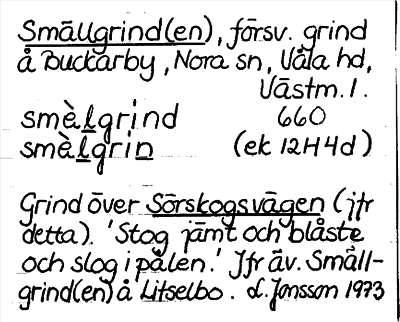 Smällgrind(en), försv. grind
å Buckarby, Nora sn, Våla hd,
Västm. l.
smèlgrind 660
smèlgrin (ek 12H4d)
Grind över Sörskogsvägen (jfr
detta). 'Stog jämt och blåste
och slog i pålen.' Jfr äv. Smäll-
grind(en) å Litselbo. L. Jonsson 1973